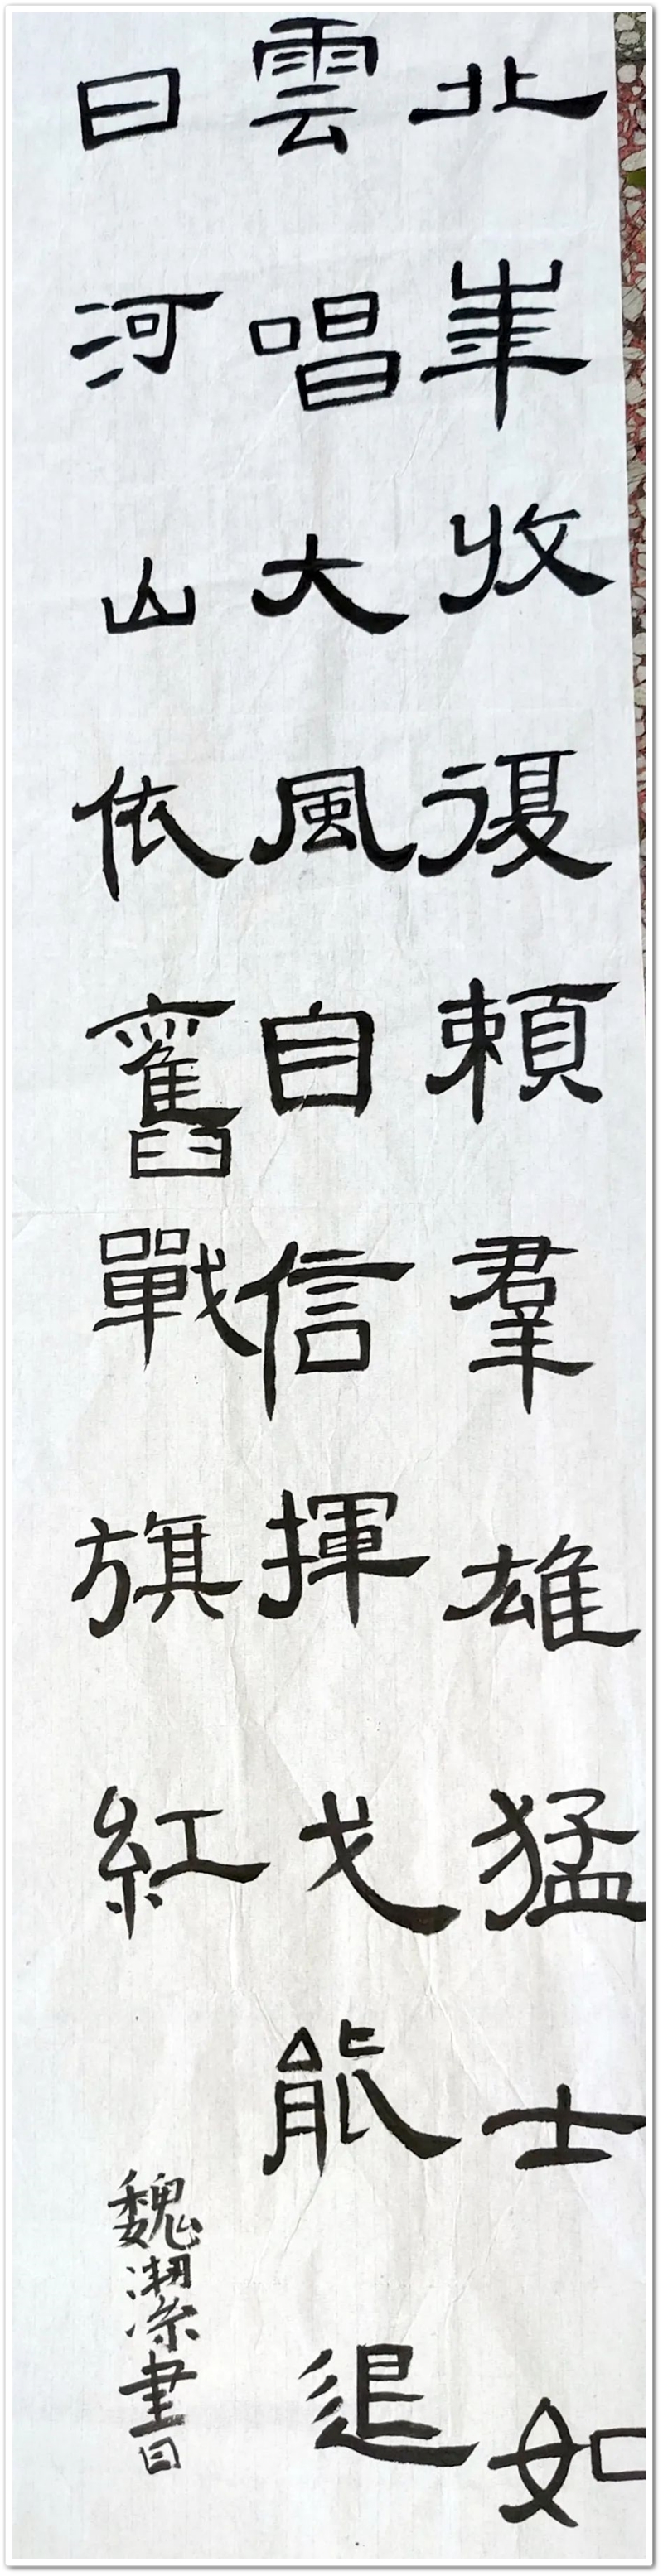 北華收復賴羣雄猛士如
雲唱大風自信揮戈能退
日河山依舊戰旗紅
魏潔書